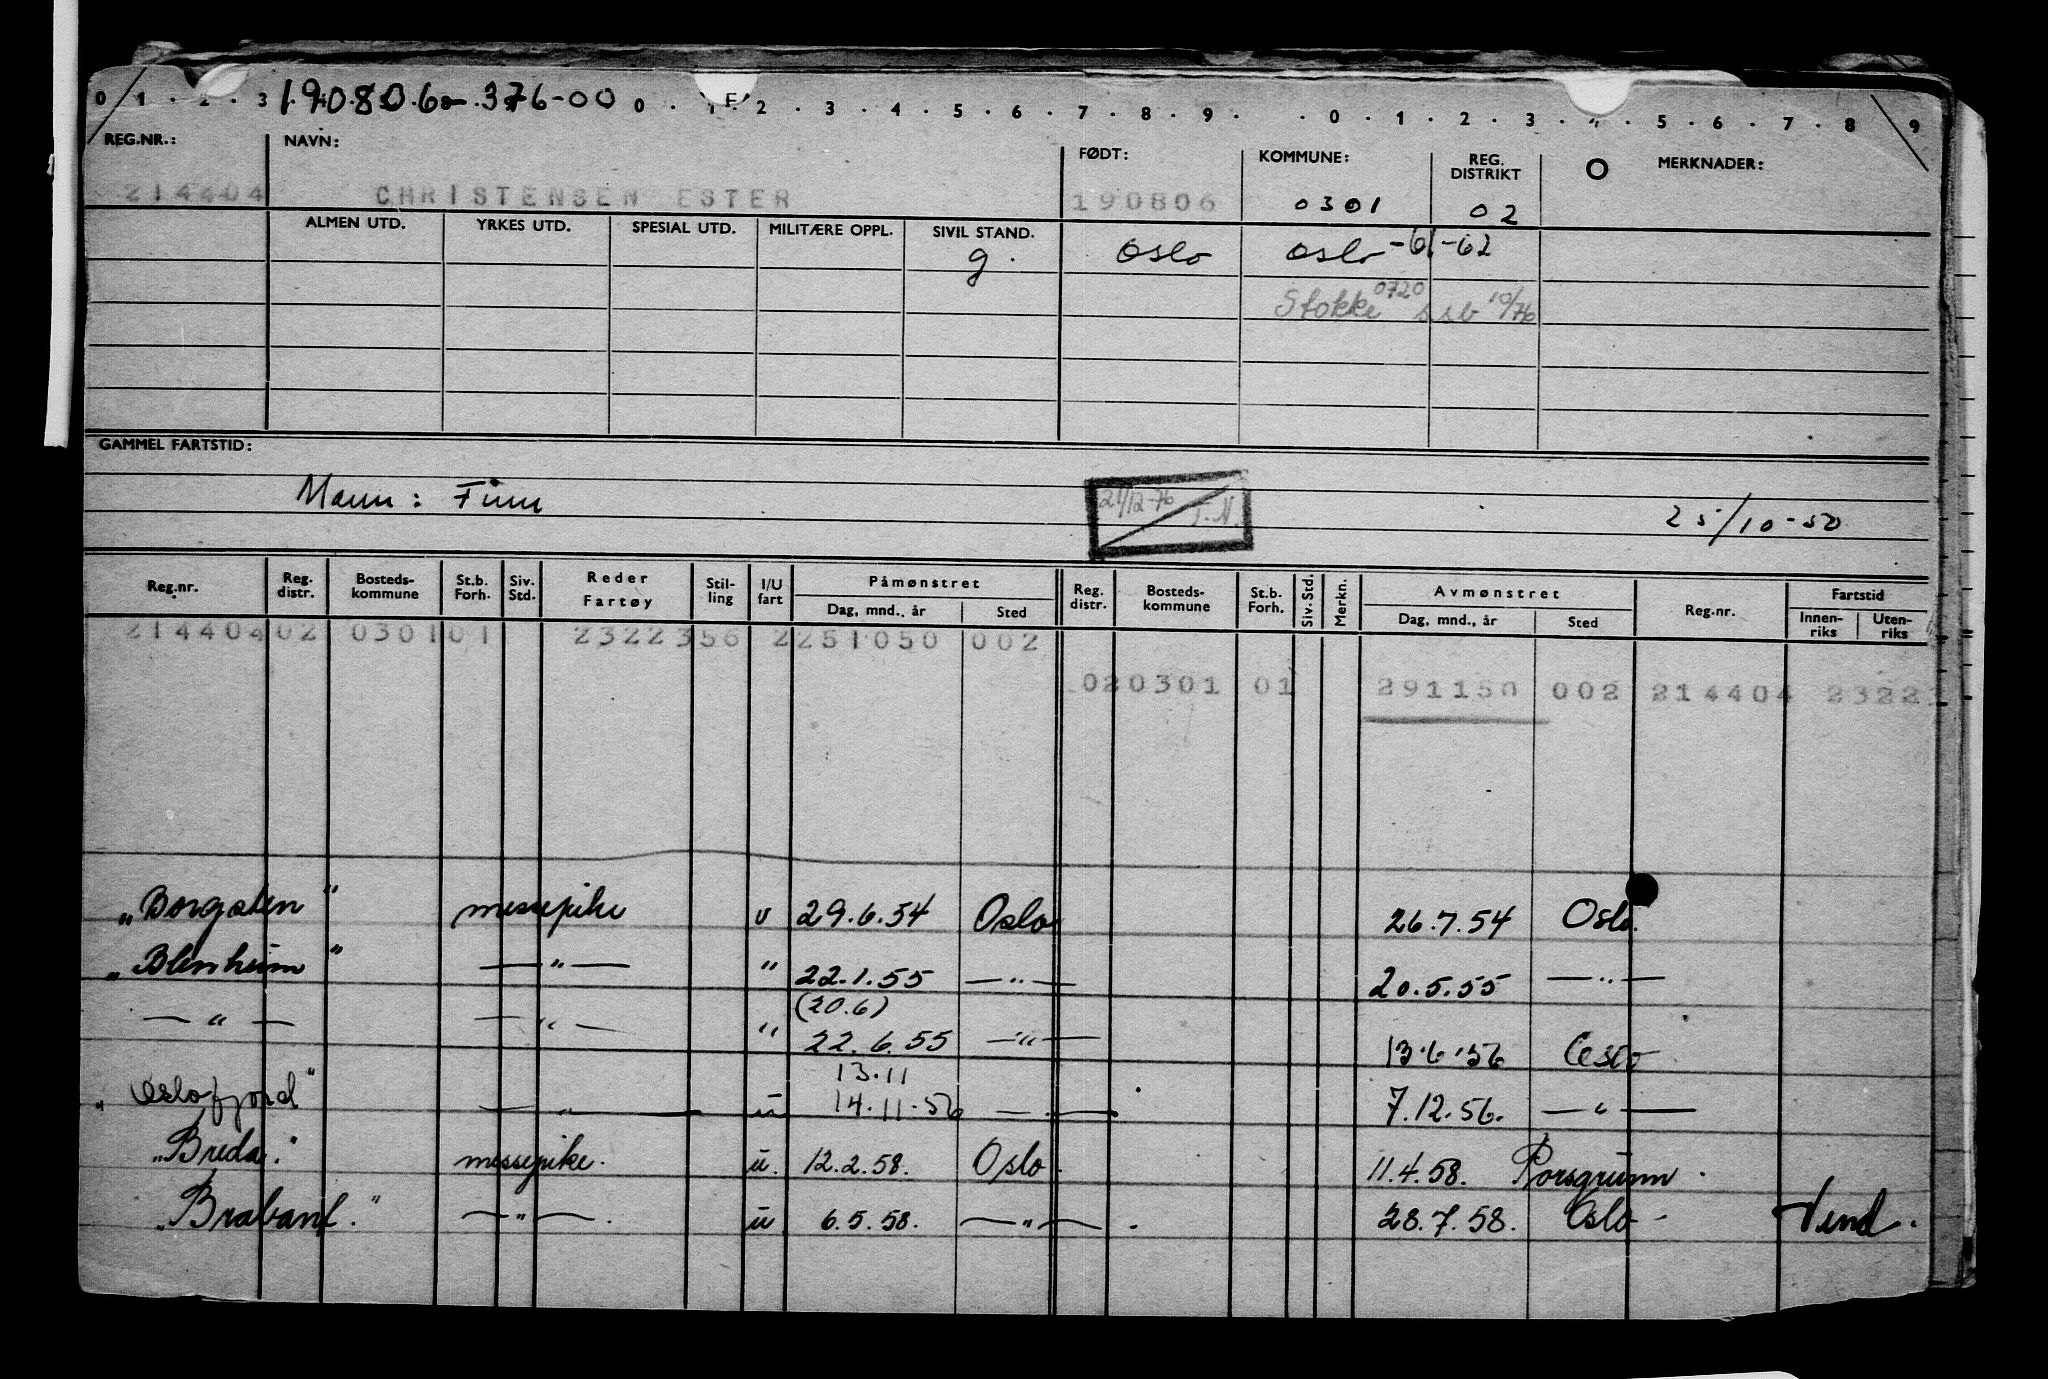 0 1 . 2 . 3 190806-376-00 0 . 1 F 2 . 3 . 4 . 5 . 6 . 7 . 8 . 9 . . 0 . 1 . 2 . 3 . 4 . 5 . 6 . 7 . 8 9
REG.NR.: NAVN: FØDT: KOMMUNE: REG. DISTRIKT O MERKNADER:
214404 CHRISTENSEN ESTER 190806 0301 02
ALMEN UTD. YRKES UTD. SPESIAL UTD. MILITÆRE OPPL. SIVIL STAND.
g. Oslo Oslo -61-62
Stokke 0720 ssb 10/76
GAMMEL FARTSTID:
Mann: Finn 21/12-76 T.N. 25/10-50
Reg.nr. Reg. distr. Bosteds- kommune St.b. Forh. Siv. Std. Reder Fartøy Stil- ling I/U fart Påmønstret Dag, mnd., år Sted Reg. distr. Bosteds- kommune St.b. Forh. Siv. Std. Merkn. Avmønstret Dag, mnd., år Sted Reg.nr. Fartstid Innen- riks Uten- riks
214404 02 0301 01 2322356 2 251050 002
02 0301 01 291150 002 214404 2322
"Borgsten" messepike u 29.6.54 Oslo 26.7.54 Oslo.
"Blenheim" — " — " 22.1.55 — " — 20.5.55 — " —
(20.6)
— " — — " — " 22.6.55 — " — 13.6.56 Oslo
13.11
"Oslofjord" — " — u 14.11.56 — " — 7.12.56. — " —
"Breda". messepike. u. 12.2.58. Oslo. 11.4.58. Porsgrunn.
"Brabant." — " — . u. 6.5.58. — " — . 28.7.58. Oslo - Vend.